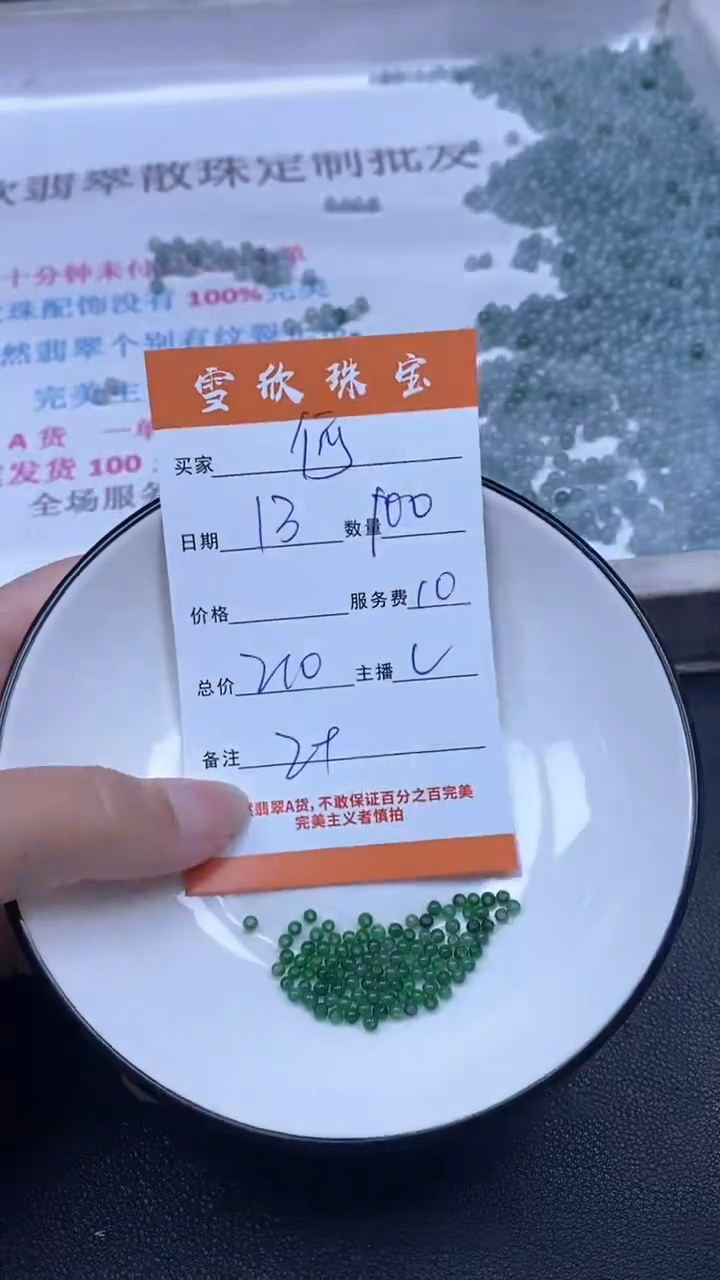 翡翠散珠定制批发
十分钟未付
珠配饰没有 100%完美
然翡翠个别有纹裂
完美主
A 货 一单
发货 100
全场服务
雪欣珠宝
买家
日期 13 数量 100
价格 服务费 10
总价 210 主播
备注
翡翠A货,不敢保证百分之百完美
完美主义者慎拍